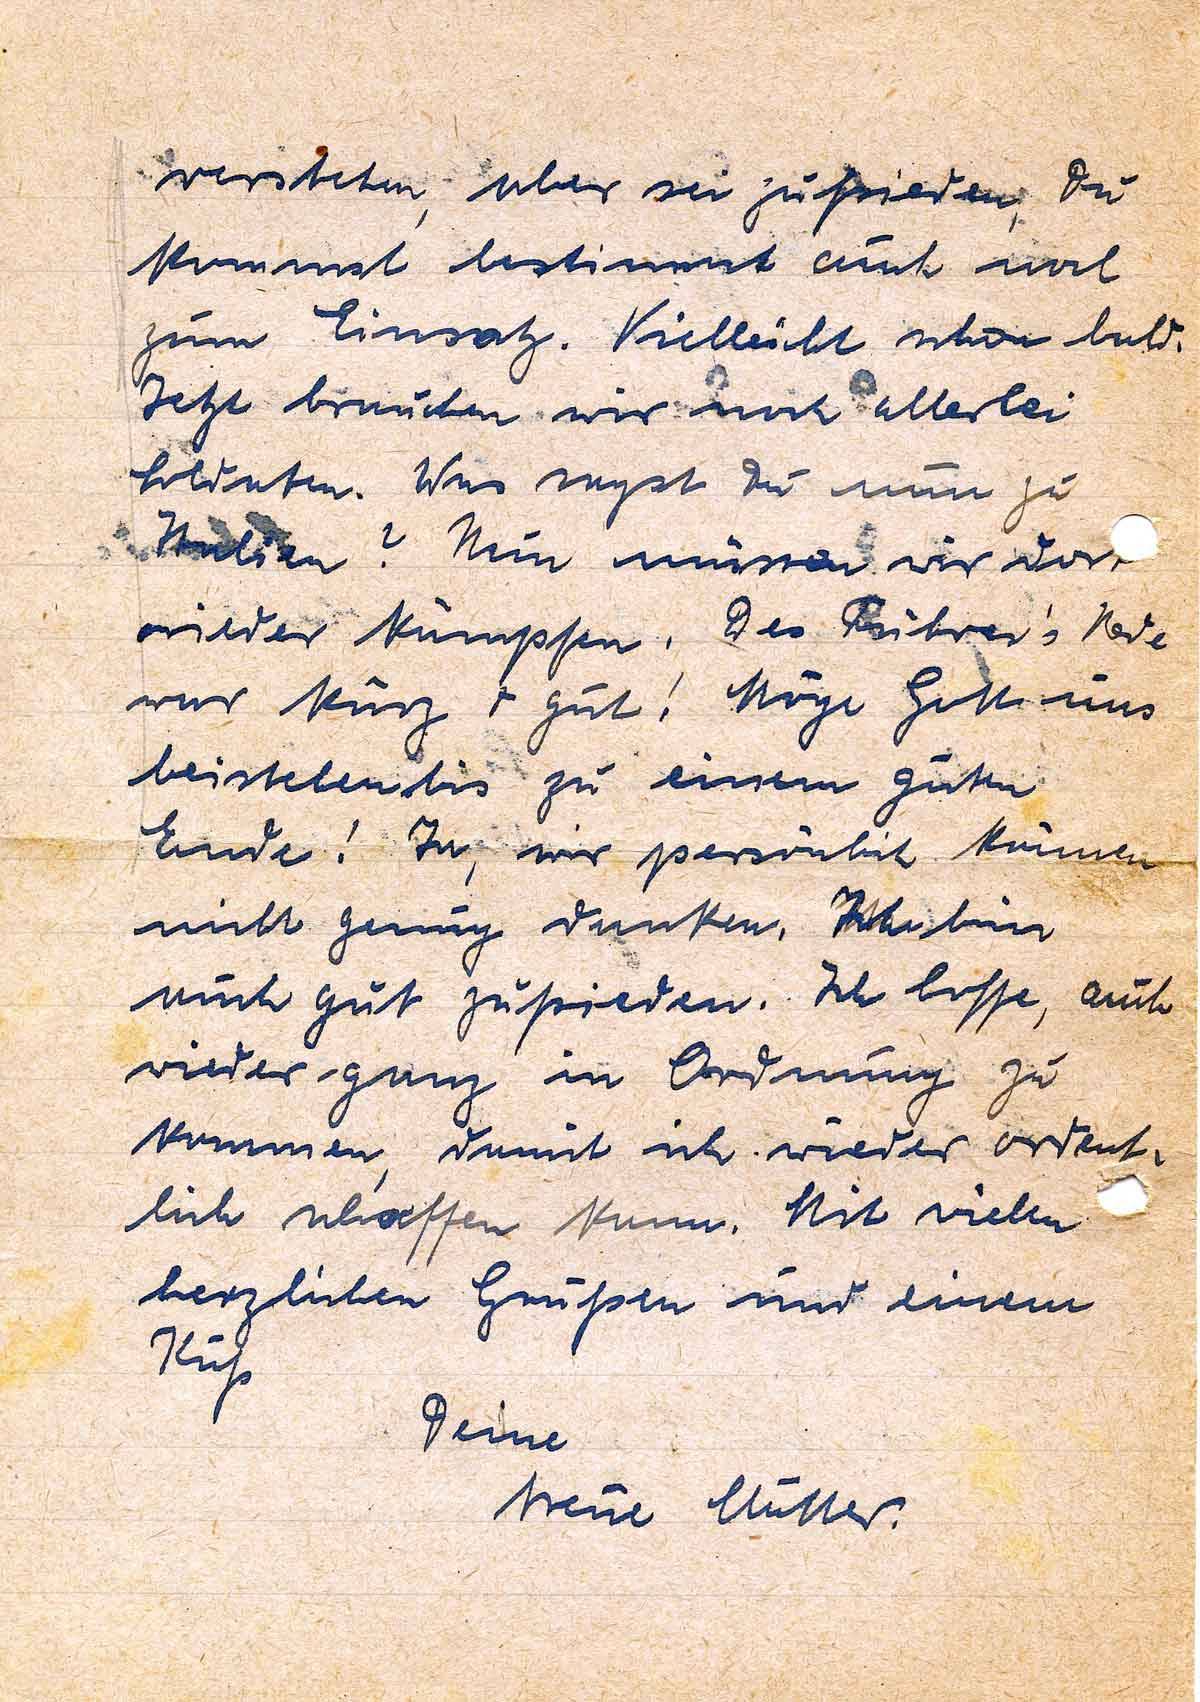 verstehen, aber sei zufrieden, Du
kommst bestimmt auch noch
zum Einsatz. Vielleicht schon bald.
Jetzt brauchen wir noch allerlei
Soldaten. Was sagst Du nun zu
Italien? Nun müssen wir dort
wieder kämpfen. Des Führer's Rede
war kurz + gut! Möge Gott uns
beistehen bis zu einem guten
Ende! Ja, wir persönlich können
nicht genug danken. Ich bin
auch gut zufrieden. Ich hoffe, auch
wieder ganz in Ordnung zu
kommen, damit ich wieder ordent-
lich schaffen kann. Mit vielen
herzlichen Grüßen und einem
Kuß
Deine
treue Mutter.